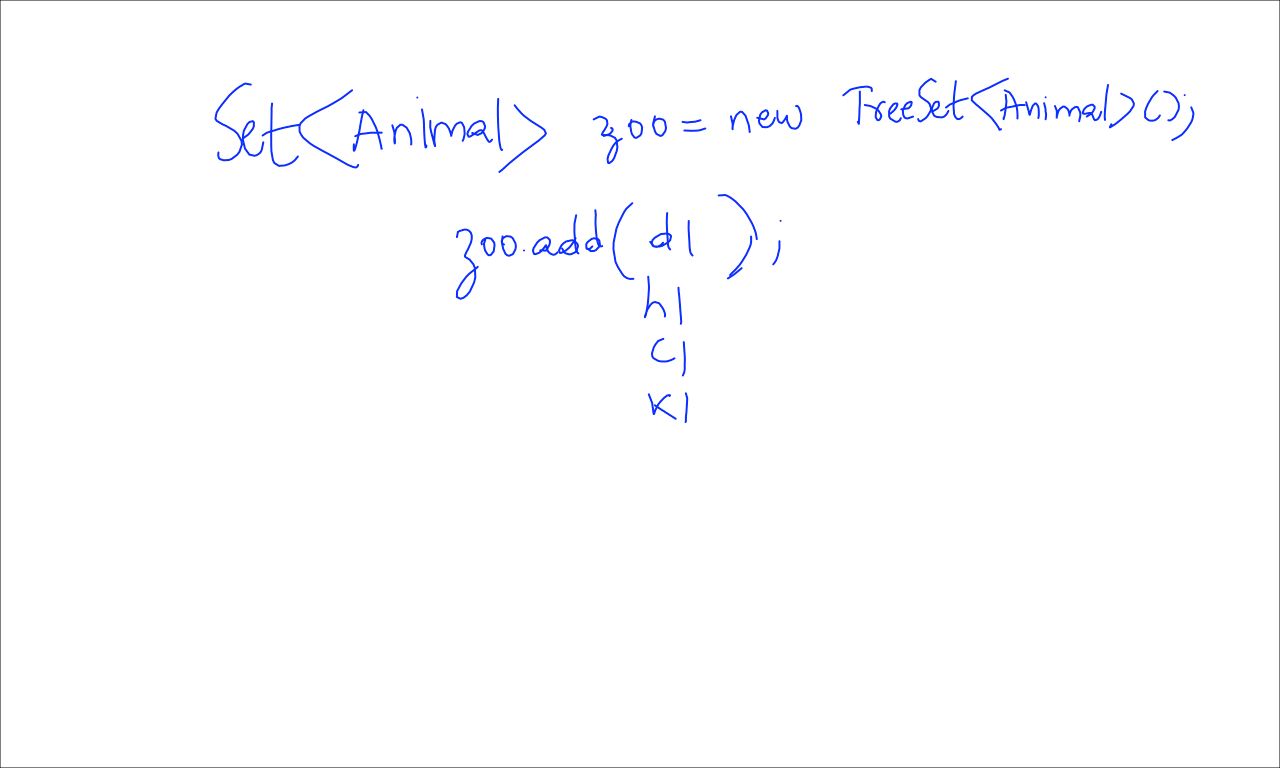 Set<Animal> zoo = new TreeSet<Animal>();
zoo.add(d1);
h1
c1
k1